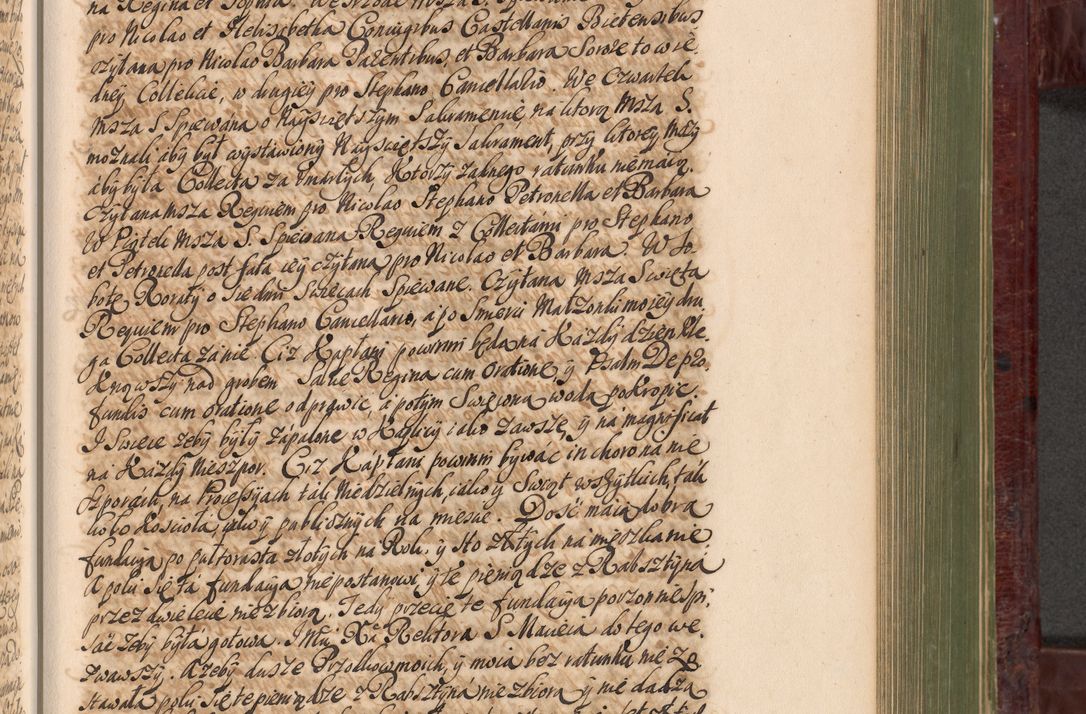 na Regina et Sophia. We Srzodę Msza S. Spiewana
pro Nicolao et Helisabetha Coniugibus Castellanis Biecensibus
czytana pro Nicolao Barbara Parentibus, et Barbara Sorore to w ie,
dney Collekcie, w drugiey pro Stephano Cancellario. We Czwartek
Msza S Spiewana o Nayswiętszym Sakramencie, na ktorą Msza S.
możnali aby był wystawiony Nayswiętszy Sakrament, przy ktorey Mszy
aby była Collecta za Umarłych, Którzy żadnego ratunku niemaią.
Czytana Msza Requiem pro Nicolao Stephano Petronella et Barbara
W Piątek Msza S. Spiewana Requiem z Collectami pro Stephano
et Petronella post fata iey czytana pro Nicolao et Barbara. W So
botę Roraty o Siedmi Swiecach Spiewane. Czytana Msza Swięta
Requiem pro Stephano Cancellario, a po Smierci Małzonki moiey dru
ga Collecta zanie Ciz Kapłani powinni będą na Kazdy dzien kle.
knąwszy nad grobem Salve Regina cum Oratione y Psalm De pro.
fundis cum oratione odprawic, a potym Swięconą wodą pokropic.
I Swiece zeby były zápalone w Kaplicy iako zawsze, y ná magnificat
na Kazdy Nieszpor. Ciz Kápłani powinni bywáć in choro na nie
szporach, na Processyach ták Niedzielnych, iako y Swiąt wszytkich, ták
koło Kościoła, iako y publicznych na miescie. Dość maią dobra
fundacyą po pułtorasta złotych na Rok. y sto złotych na mieszkanie
A poki się tá fundacyia nie postanowi, y te pieniądze z Rabsztyná
przez dwie lecie nie zbiorą. Tedy przecię te fundacyią porządnie spi,
sać żeby byłá gotowa. I Mci Xa Rektora S Macieia do tego we.
zwawszy. A żeby dusze Przodkow moich, y moia bez ratunku nie zo
stawała poki się te pieniądze z Rabsztyná nie zbiorą y nie dadzą